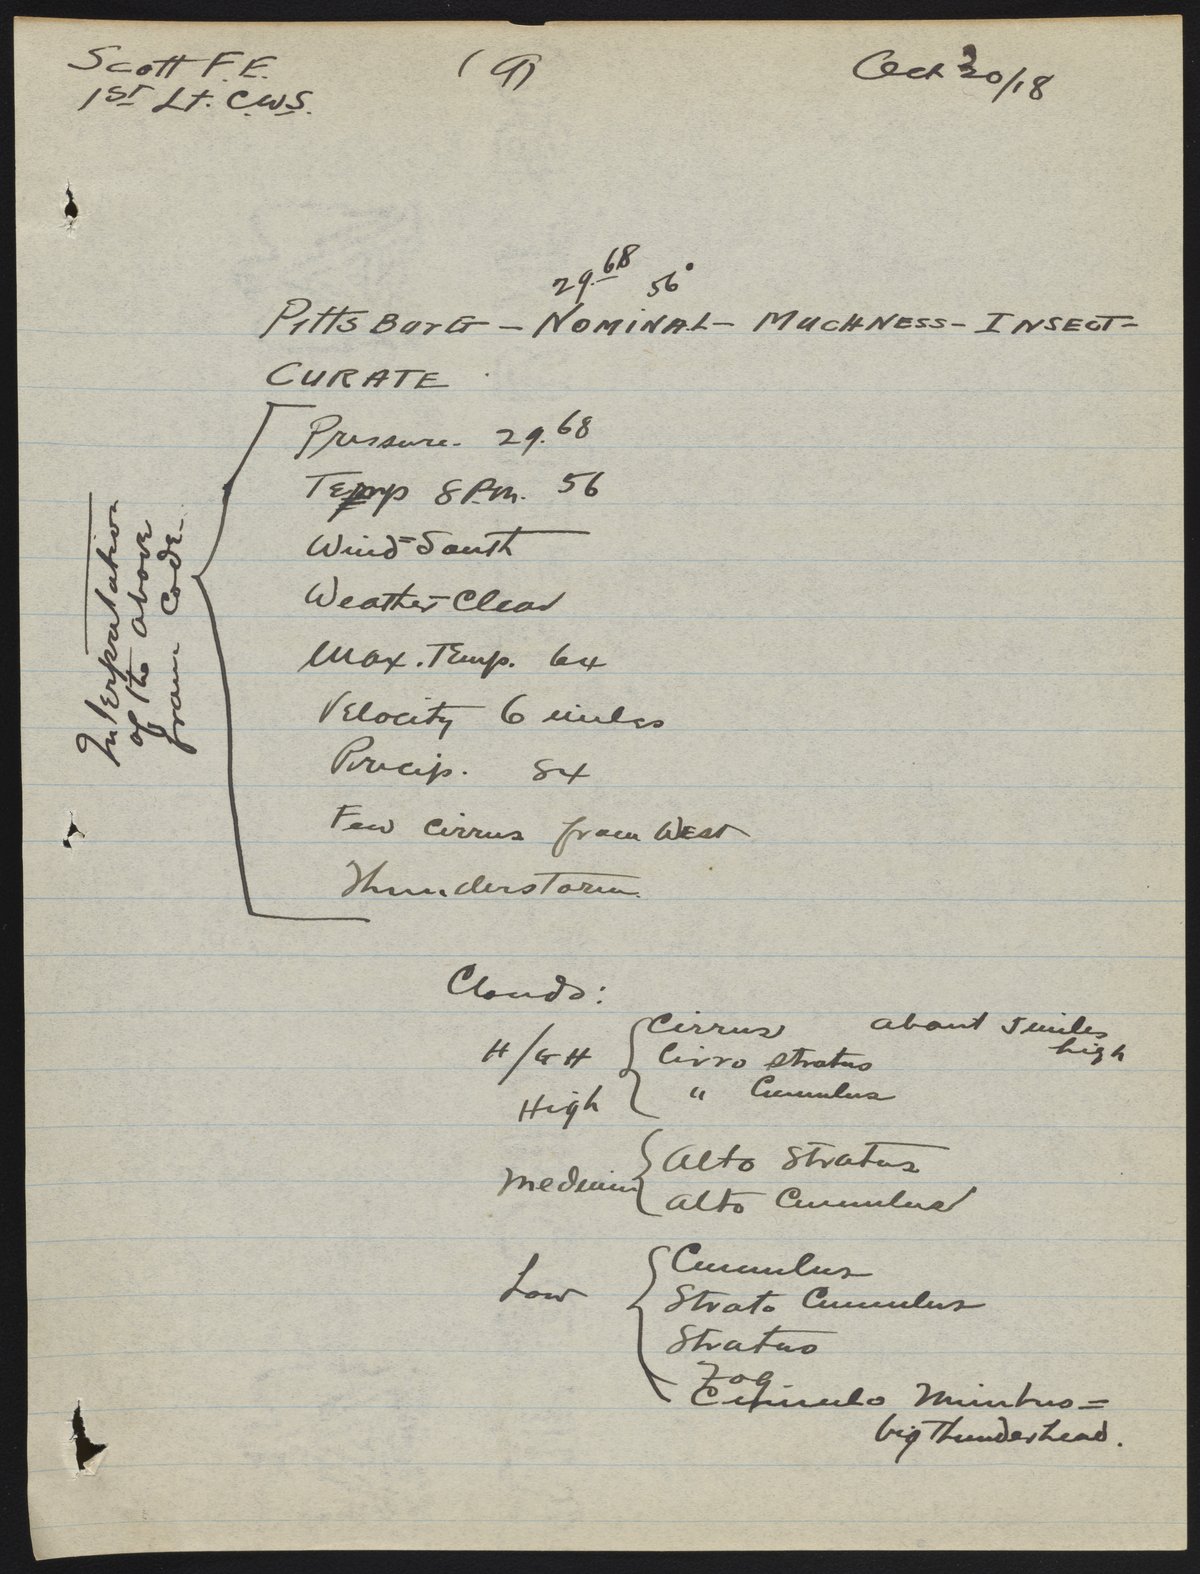 Scott F.E. (9) Oct 30/18
1st Lt. C.W.S.
29.68 56°
Pittsburg — Nominal — Muchness — Insect —
Curate
Interpretation
of the above
from Code —
Pressure. 29.68
Temp 8 P.m. 56
Wind = South
Weather Clear
Max. Temp. 64
Velocity 6 miles
Precip. 84
Few Cirrus from West
Thunderstorm.
Clouds:
Cirrus about 5 miles
high
Cirro Stratus
High " Cumulus
Medium Alto Stratus
Alto Cumulus
Low Cumulus
Strato Cumulus
Stratus
Fog
Nimbus =
big Thunderhead.